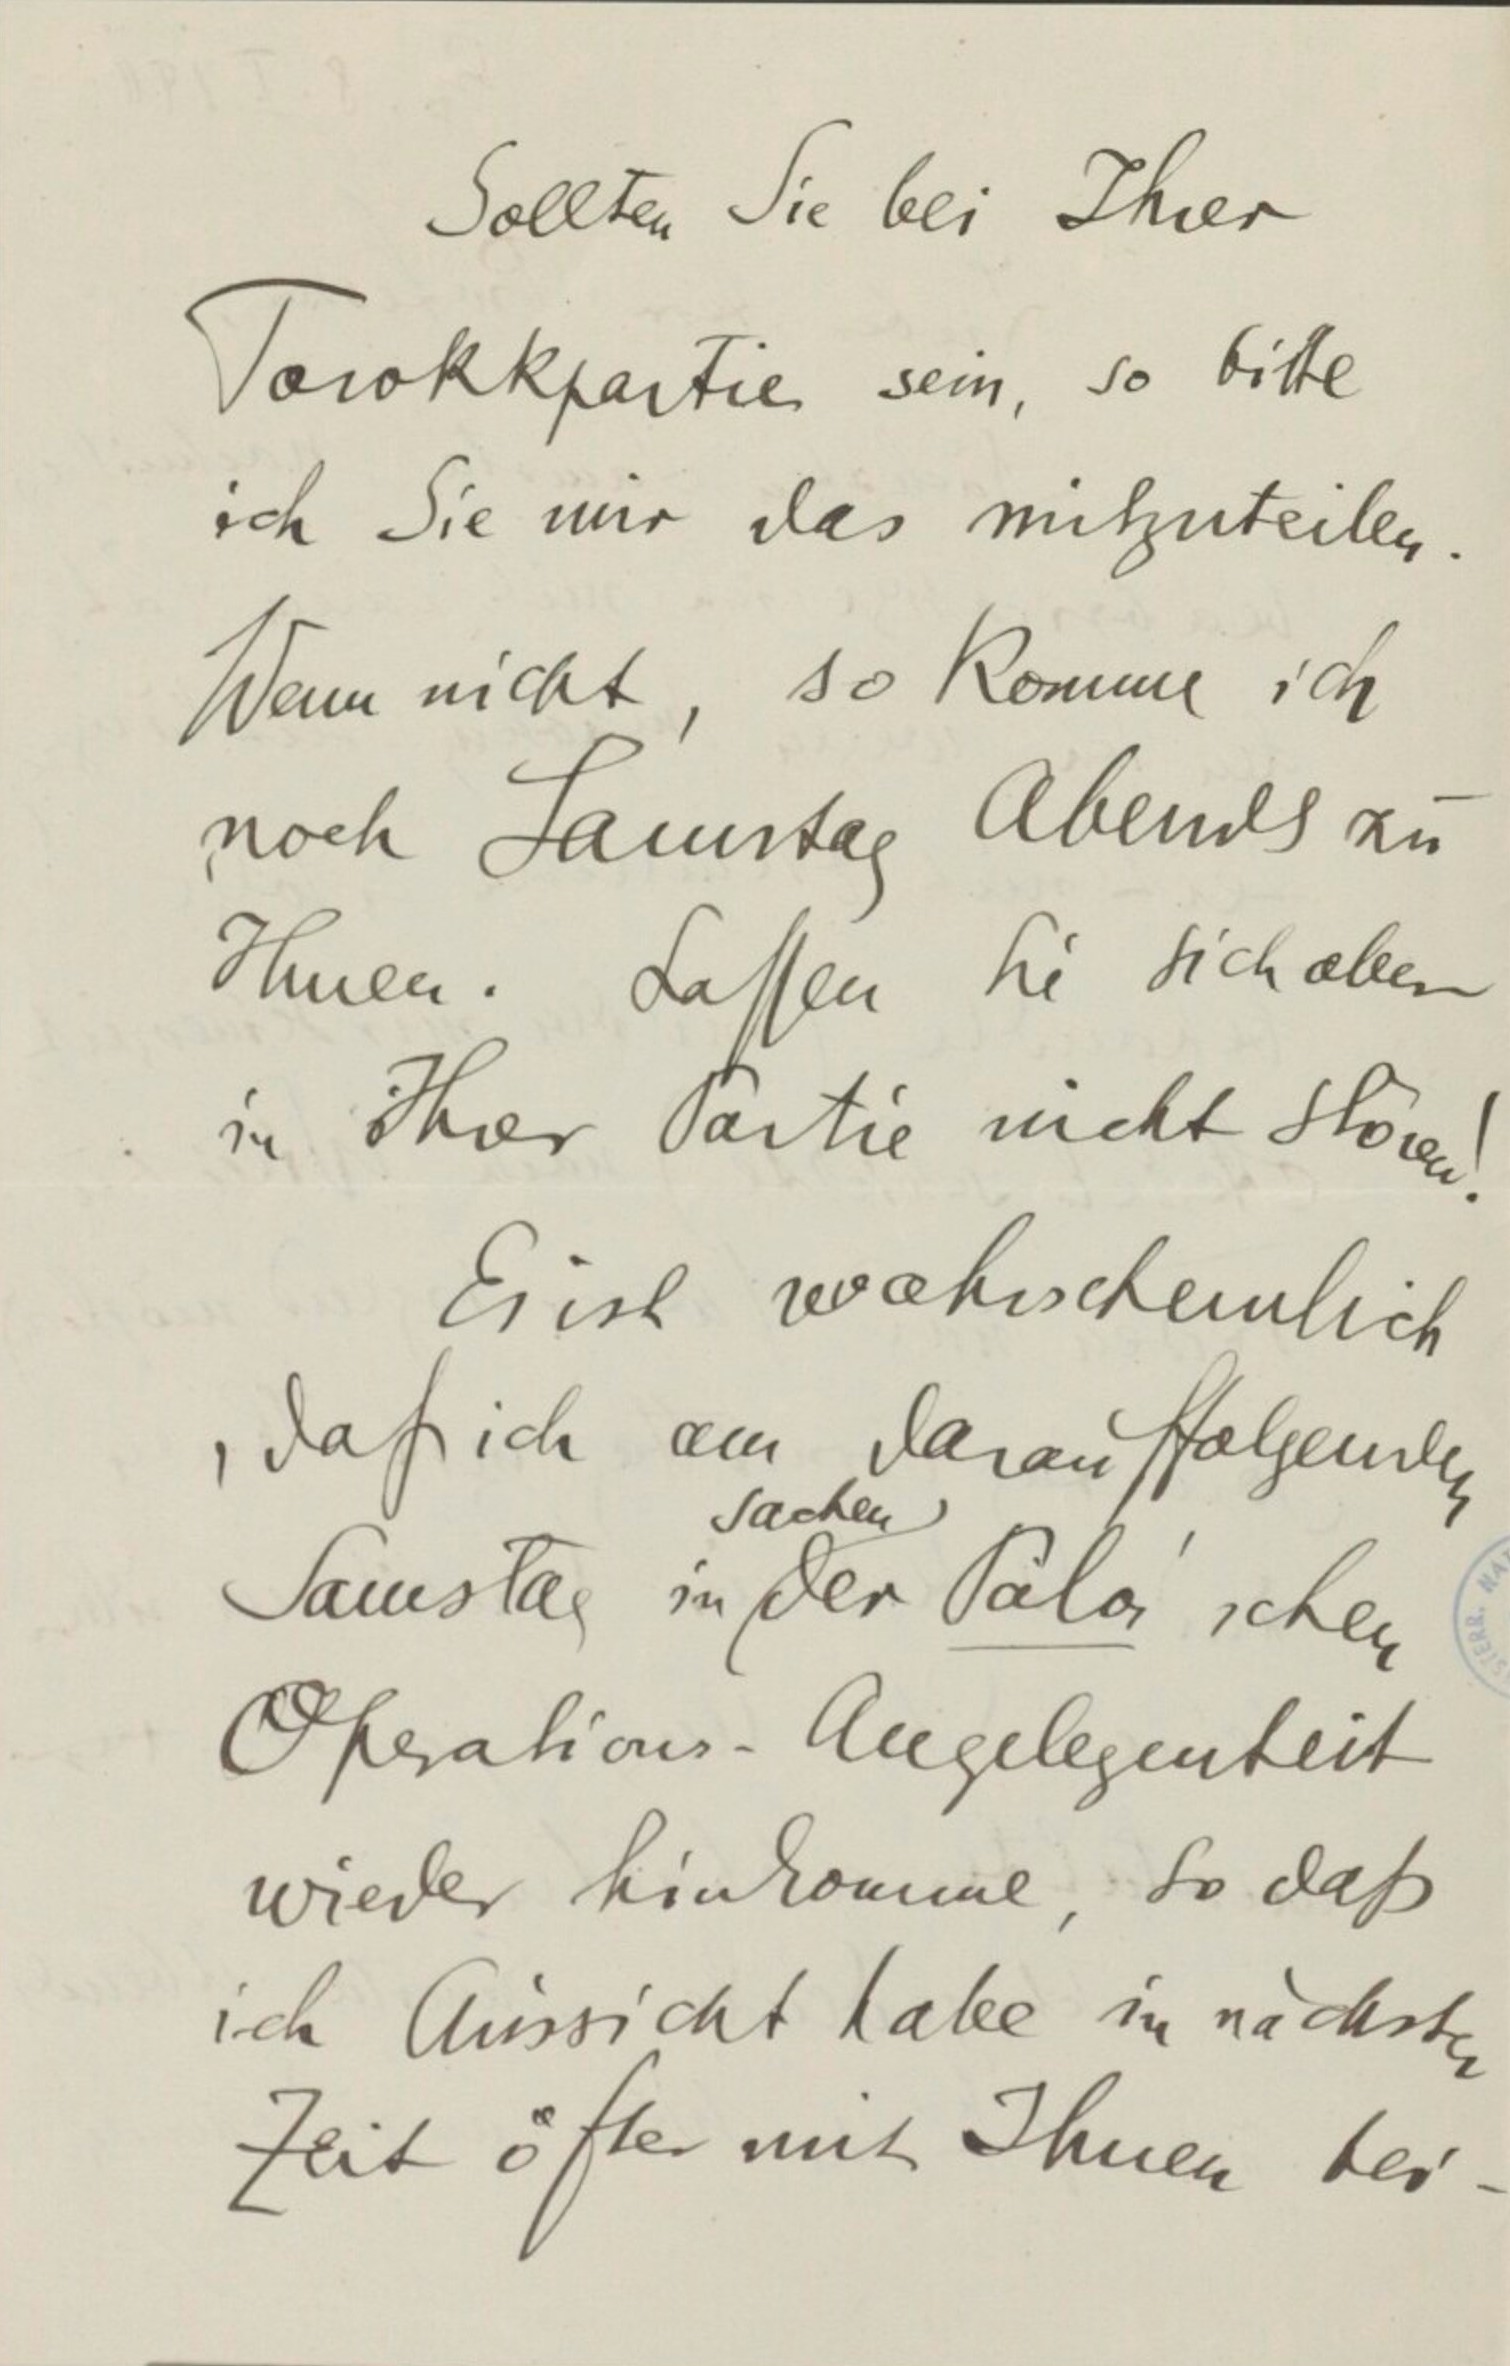 Sollten Sie bei Ihrer
Tarokkpartie sein, so bitte
ich Sie mir das mitzuteilen.
Wenn nicht, so komme ich
noch Samstag Abends zu
Ihnen. Lassen Sie sich aber
in Ihrer Partie nicht stören!
Es ist wahrscheinlich
, daß ich am darauffolgenden
sachen
Samstag in der Pálo'schen
Operations-Angelegenheit
wieder hinkomme, so daß
ich Aussicht habe in nächster
Zeit öfter mit Ihnen bei-